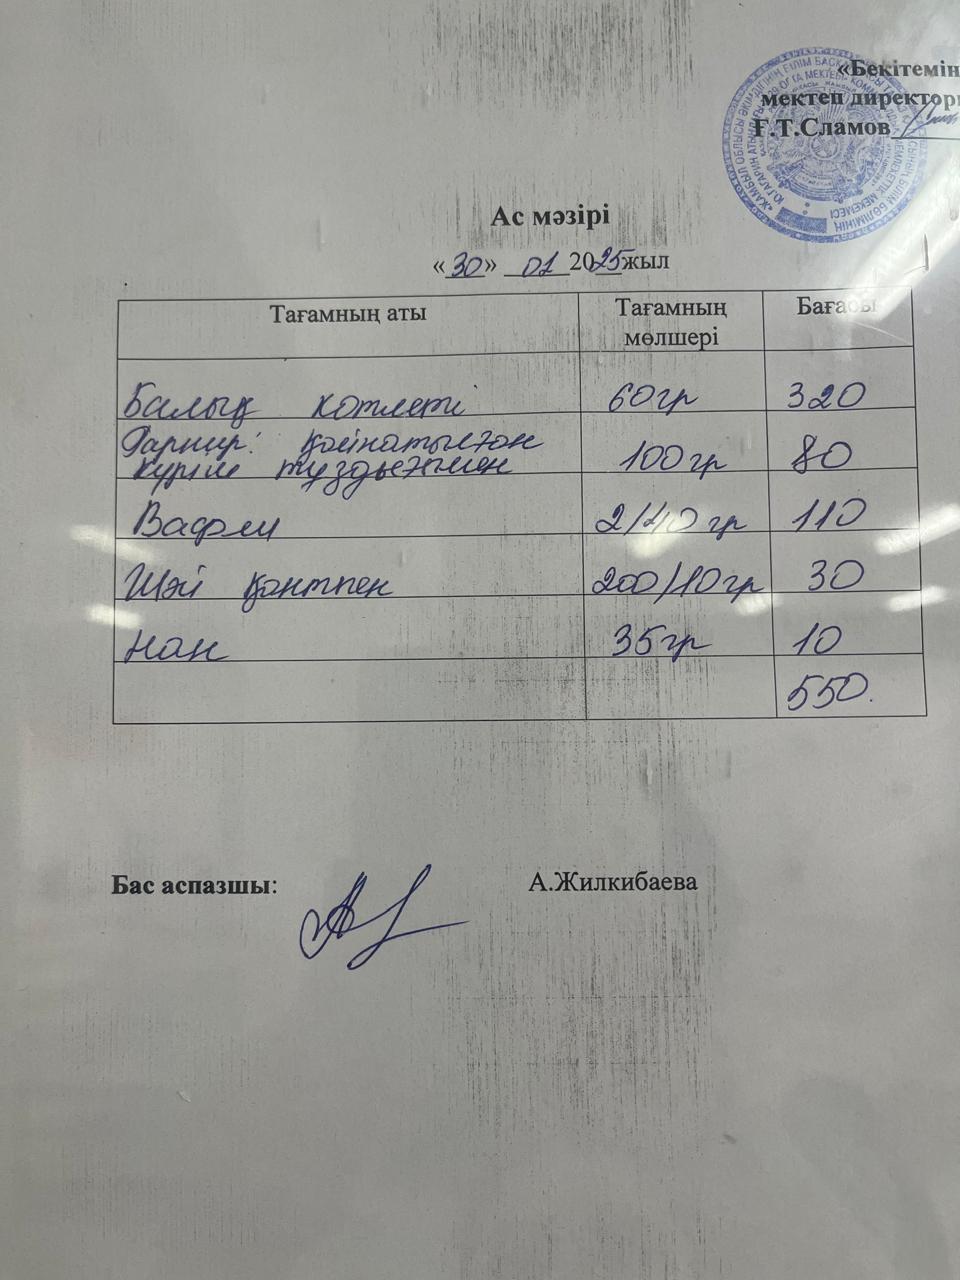 «Бекітемін
мектеп директоры
Ғ.Т.Сламов
Ас мәзірі
«30» 01 2025 жыл
Тағамның аты Тағамның мөлшері Бағасы
Балық котлеті 60гр 320
Гарнир: қайнатылған күріш тұздықпен 100гр 80
Вафли 2/40 гр 110
Шәй қантпен 200/10гр 30
Нан 35гр 10
550.
Бас аспазшы: А.Жилкибаева